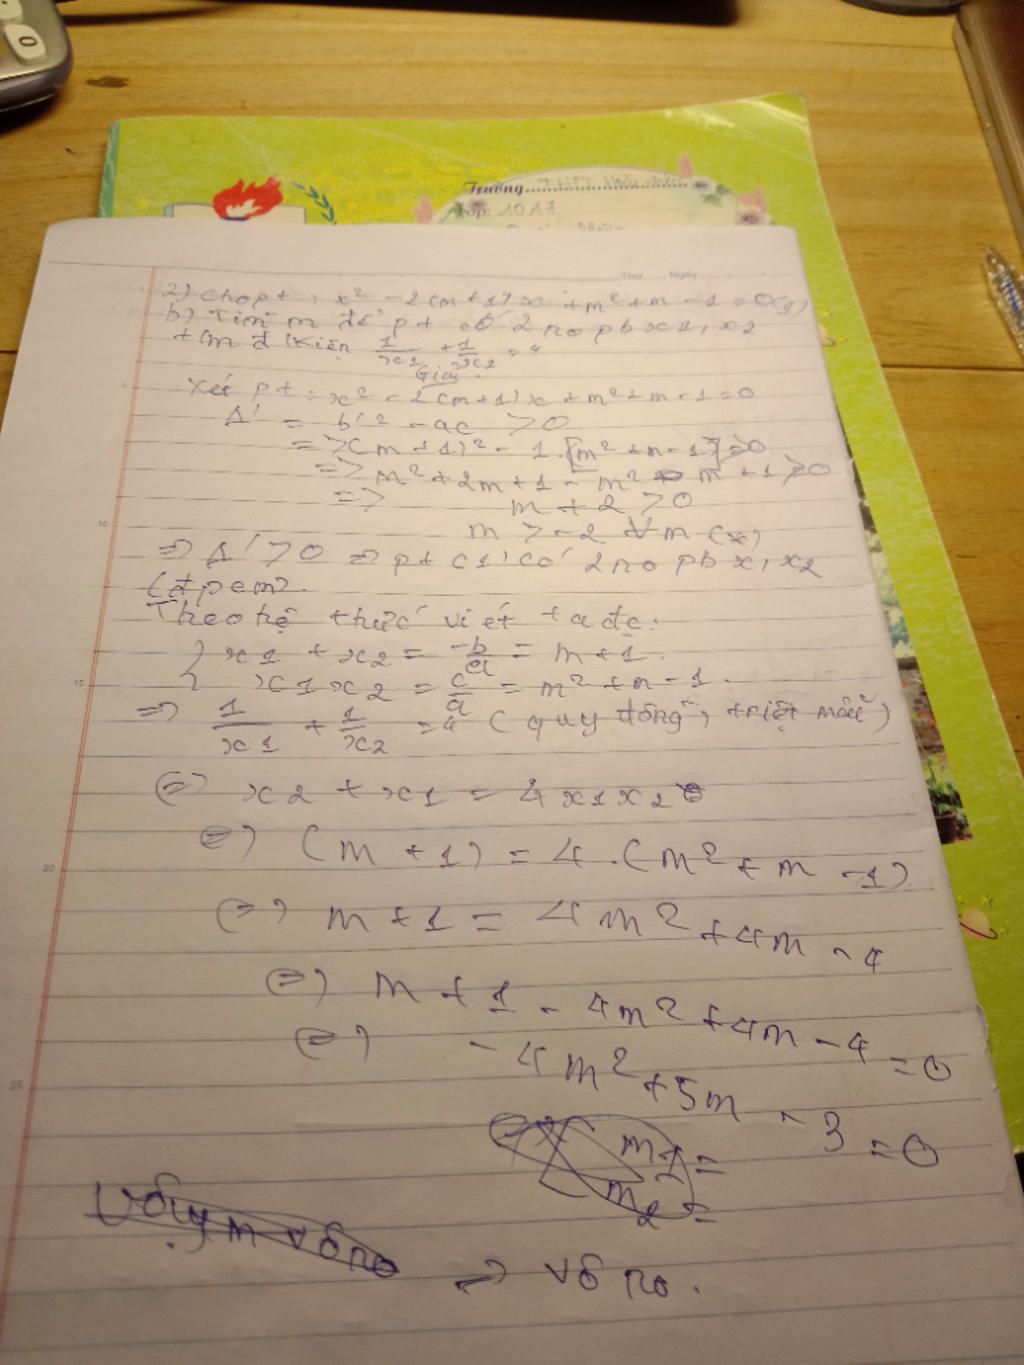 0
Trường
Lớp: 10A7
Thứ Ngày
2) cho pt : x² - 2(m+1)x + m² + m - 1 = 0 (1)
b) Tìm m để pt có 2 no pb x1, x2
t/m đ/kiện 1/x1 + 1/x2 = 4
Giải
Xét pt : x² - 2(m+1)x + m² + m - 1 = 0
Δ' = b'² - ac > 0
=> (m+1)² - 1.[m² + m - 1] > 0
=> m² + 2m + 1 - m² - m + 1 > 0
=> m + 2 > 0
m > -2 ∀m (*)
=> Δ' > 0 => pt (1) có 2 no pb x1, x2
(đpcm).
Theo hệ thức viét ta đc:
{ x1 + x2 = -b/a = m + 1.
x1x2 = c/a = m² + m - 1.
=> 1/x1 + 1/x2 = 4 (quy đồng, triệt mẫu)
(=) x2 + x1 = 4x1x2
(=) (m + 1) = 4.(m² + m - 1)
(=) m + 1 = 4m² + 4m - 4
(=) m + 1 - 4m² + 4m - 4 = 0
(=) -4m² + 5m - 3 = 0
m1 =
m2 =
Vậy m vô no
=> vô no.
5
10
15
20
25